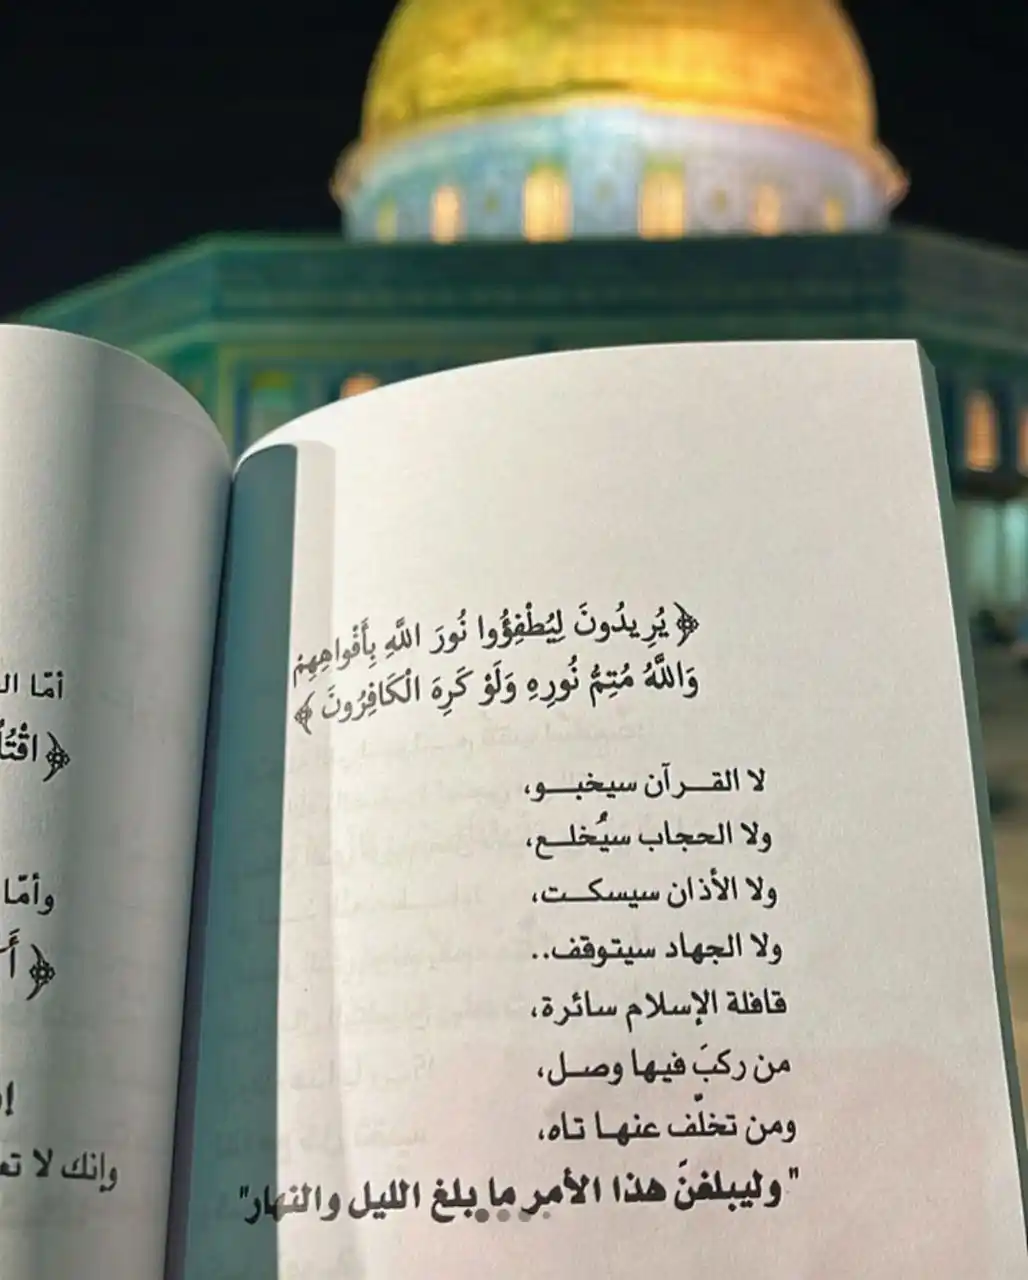 ﴿ يُرِيدُونَ لِيُطْفِؤُوا نُورَ اللَّهِ بِأَفْوَاهِهِمْ
وَاللَّهُ مُتِمُّ نُورِهِ وَلَوْ كَرِهَ الْكَافِرُونَ ﴾
لا القـرآن سيخبـو،
ولا الحجاب سيُخلـع،
ولا الأذان سيسكـت،
ولا الجهاد سيتوقف..
قافلة الإسلام سائرة،
من ركبَ فيها وصـل،
ومن تخلّف عنهـا تاه،
"وليبلغنّ هذا الأمر ما بلغ الليل والنهار"
أمّا
وأمّا
وإنك لا